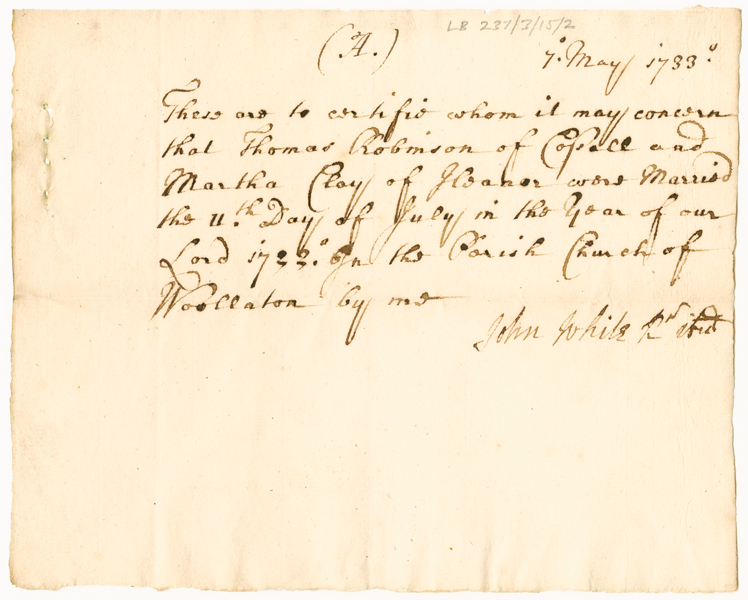 LB 237/3/15/2
(A.)
7.° May 1733.°
These are to certifie whom it may concern
that Thomas Robinson of Cossall and
Martha Clay of Heanor were Married
the 11.th Day of July in the Year of our
Lord 1722.° In the Parish Church of
Woollaton by me
John White Rr